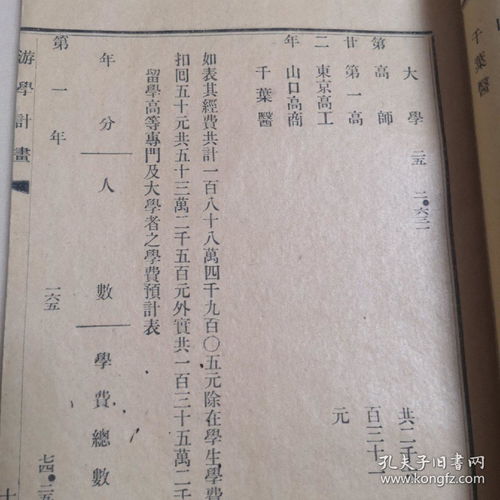 千葉醫
大學 二五 二●六三一 共二千六
第 高師 百三十一
廿 第一高 元
二 東京高工
年 山口高商
千葉醫
如表其經費共計一百八十八萬四千九百〇五元除在學生學費
扣囘五十元共五十三萬二千五百元外實共一百三十五萬二千
留學高等專門及大學者之學費預計表
年分 人數 學費總數
第一年 一六五 七四●二五
游學計畫
孔夫子旧书网